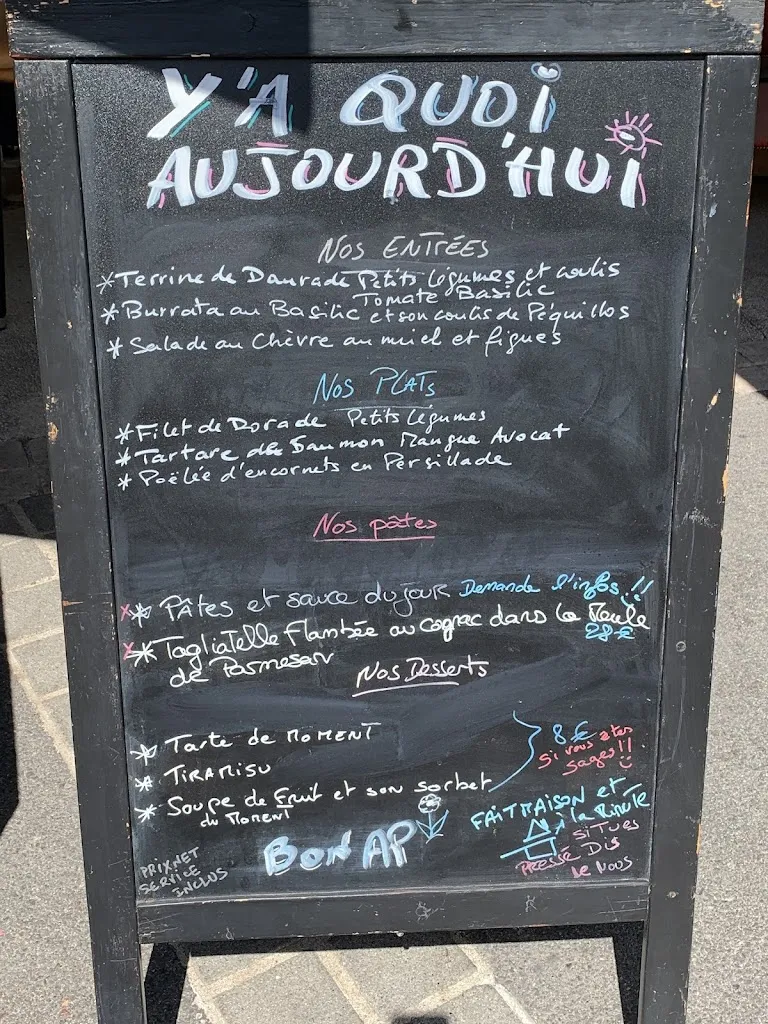 Y'A QUOI
AUJOURD'HUI
NOS ENTRÉES
* Terrine de Daurade Petits légumes et coulis
Tomate Basilic
* Burrata au Basilic et son coulis de Péquillos
* Salade au Chèvre au miel et figues
NOS PLATS
* Filet de Dorade Petits légumes
* Tartare de Saumon Mangue Avocat
* Poëlée d'encornets en Persillade
Nos pâtes
x* Pâtes et sauce du jour Demande l'infos !!
x* Tagliatelle Flambée au cognac dans la Meule
de Parmesan
28 €
Nos Desserts
* Tarte de MOMENT
* TIRAMISU
* Soupe de Fruit et son sorbet
du MOMENT
8 €
Si vous etes
sages !!
FAIT MAISON et
à la Minute
SI TU ES
PRESSÉ DIS
le NOUS
BON AP
PRIX NET
SERVICE
INCLUS